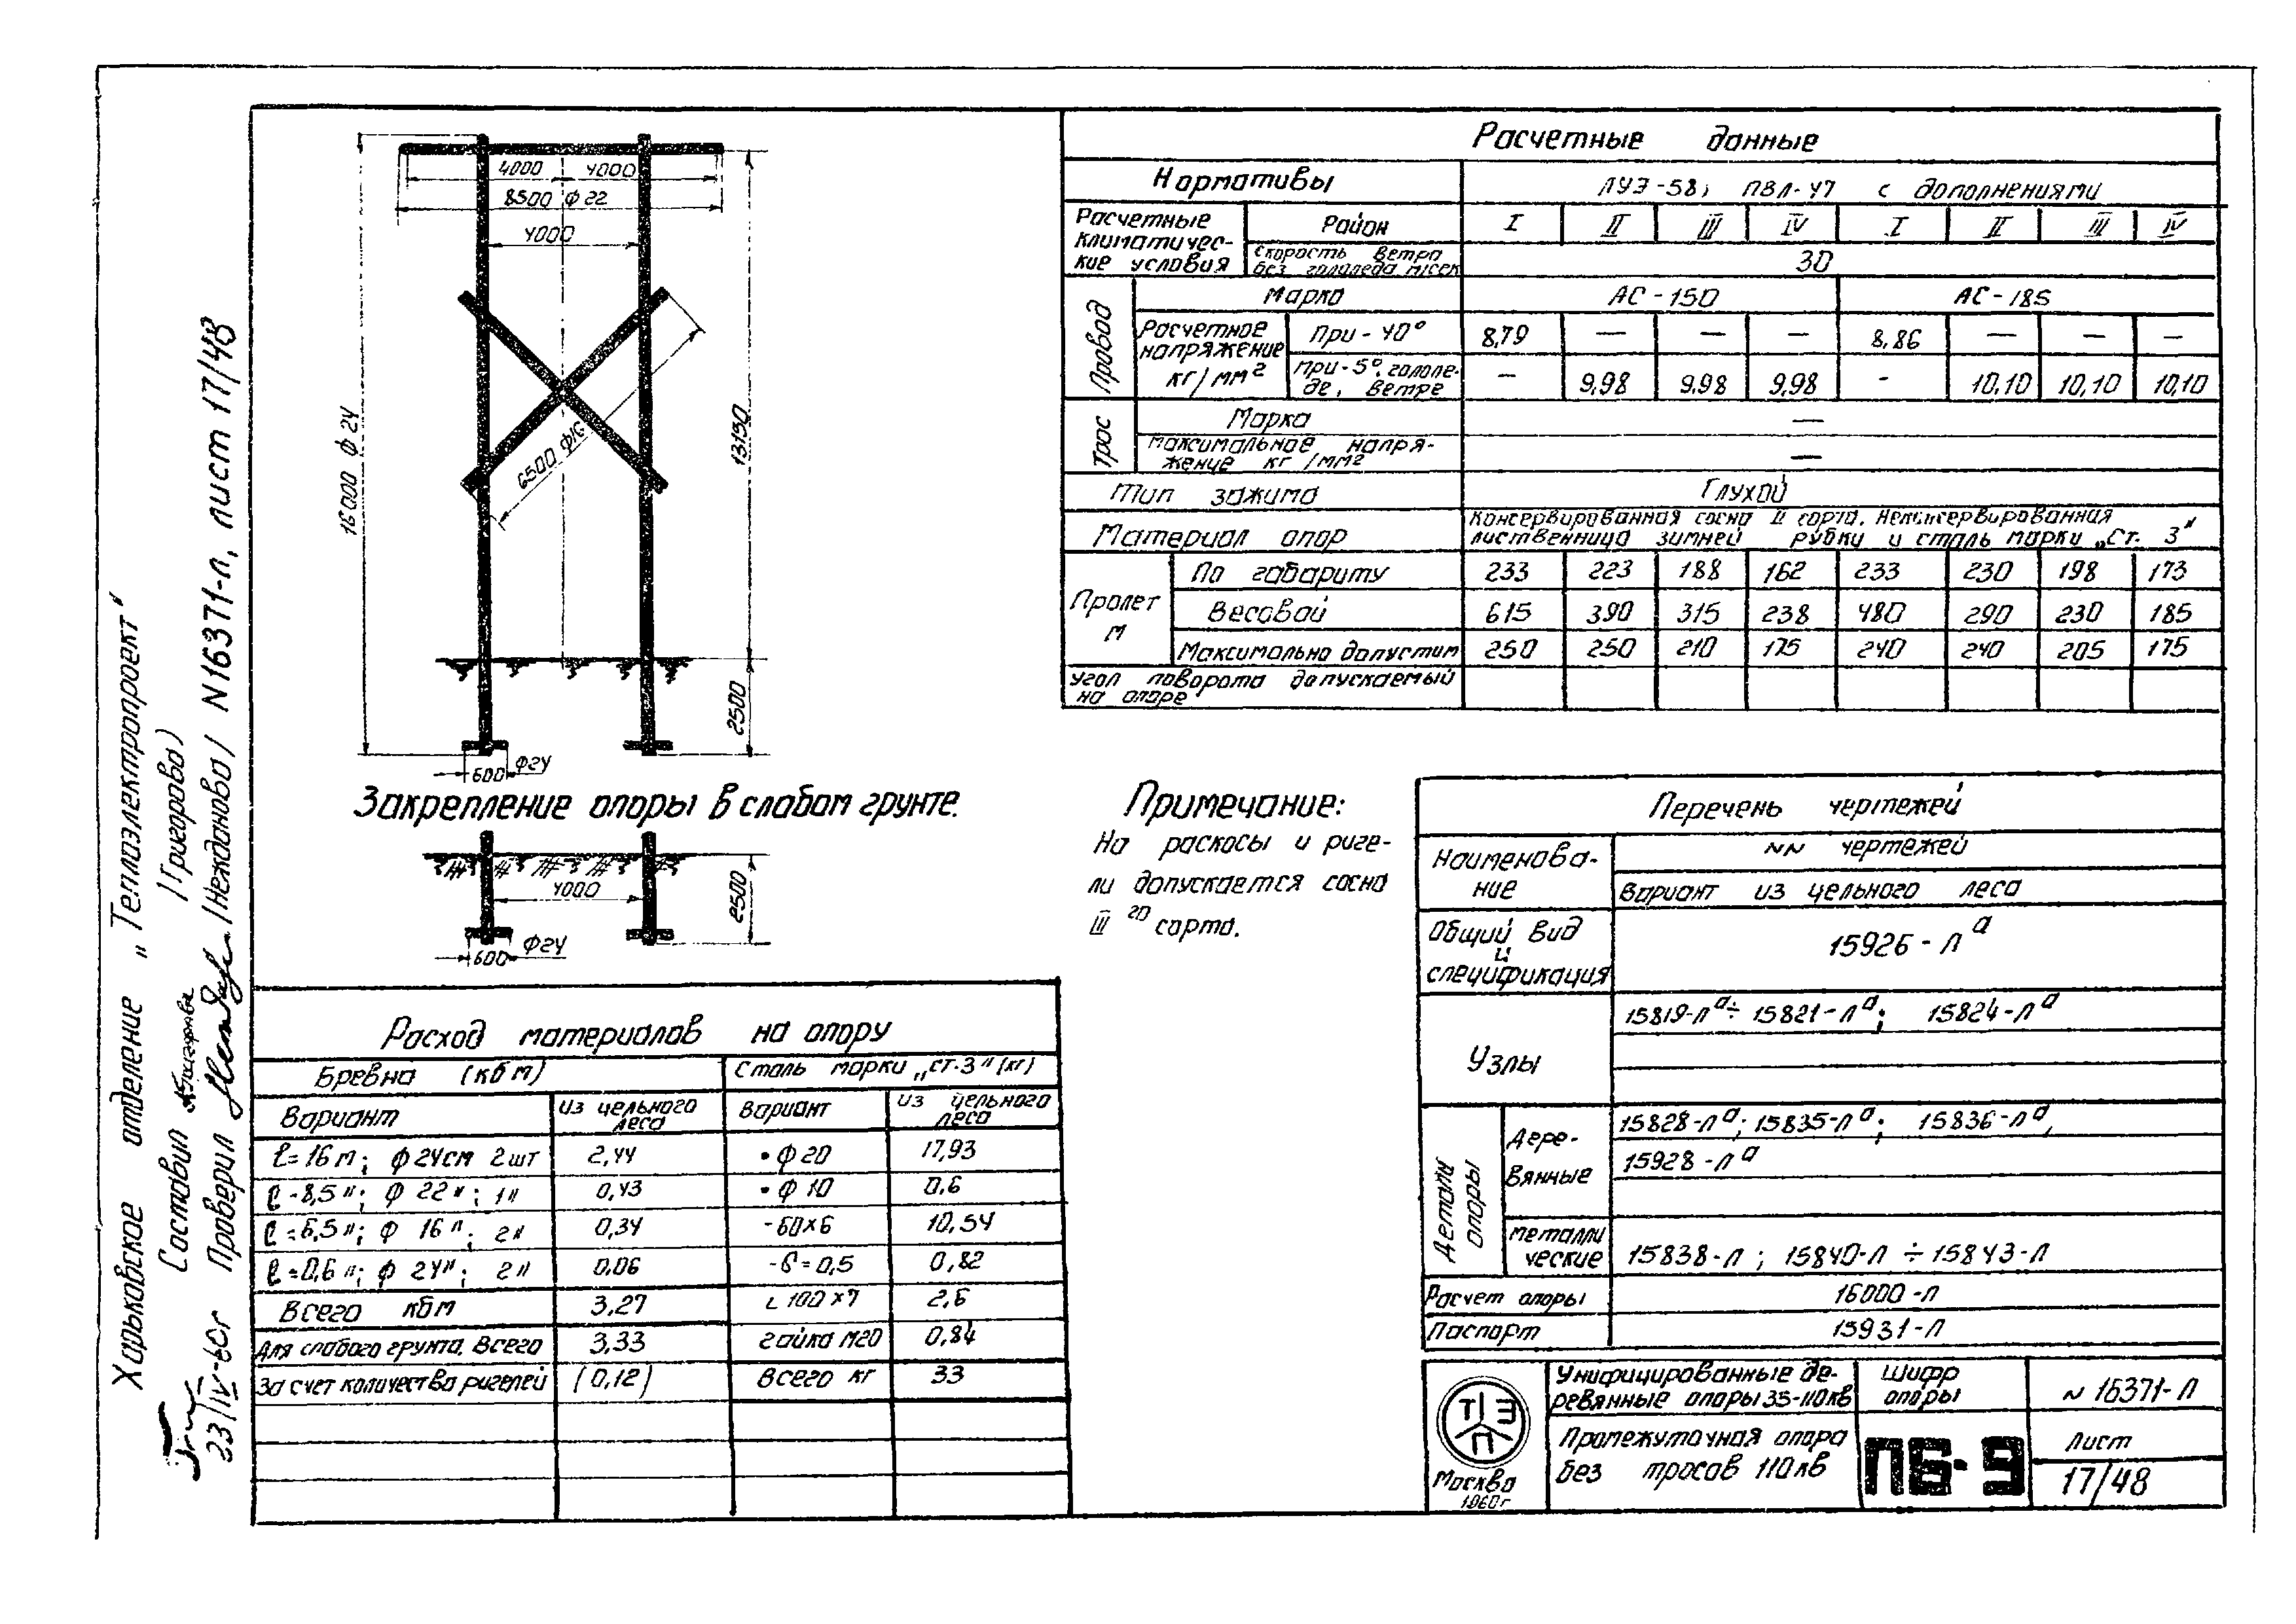 4000 4000
8500 ф 22
4000
16000 ф 24
6500 ф16
13150
2500
600 ф24
Закрепление опоры в слабом грунте.
4000
2500
600 ф24
Расчетные данные
Нормативы ПУЭ-58, ПВЛ-47 с дополнениями
Расчетные климатичес-
кие условия
Район I II III IV I II III IV
Скорость ветра
без гололеда м/сек 30
Провод
Марка АС-150 АС-185
Расчетное
напряжение
кг/мм²
при -40° 8,79 — — — 8,86 — — —
при -5°, гололе-
де, ветре — 9,98 9,98 9,98 - 10,10 10,10 10,10
Трос
Марка —
максимальное напря-
жение кг/мм² —
Тип зажима Глухой
Материал опор Консервированная сосна II сорта. Неконсервированная
лиственница зимней рубки и сталь марки „Ст. 3"
Пролет
м
По габариту 233 223 188 162 233 230 198 173
Весовой 615 390 315 238 480 290 230 185
Максимально допустим 250 250 210 175 240 240 205 175
Угол поворота допускаемый
на опоре
Примечание:
На раскосы и риге-
ли допускается сосна
III го сорта.
Перечень чертежей
Наименова-
ние
NN чертежей
Вариант из цельного леса
Общий вид
и
спецификация
15926-Л а
Узлы
15819-Л а ÷ 15821-Л а; 15824-Л а
Детали опоры
Дере-
вянные
15828-Л а; 15835-Л а; 15836-Л а,
15928-Л а
металли
ческие
15838-Л; 15840-Л ÷ 15843-Л
Расчет опоры 16000-Л
Паспорт 15931-Л
Расход материалов на опору
Бревна (кбм) Сталь марки „ст.3" (кг)
Вариант из цельного
леса вариант из цельного
леса
ℓ=16 м; ф 24см 2шт 2,44 • ф 20 17,93
ℓ=8,5 "; ф 22 "; 1" 0,43 • ф 10 0,6
ℓ=6,5 "; ф 16 "; 2" 0,34 -60×6 10,54
ℓ=0,6 "; ф 24 "; 2" 0,06 -δ=0,5 0,82
Всего кбм 3,27 ∟100×7 2,6
Для слабого грунта. Всего 3,33 гайка М20 0,84
За счет количества ригелей (0,12) Всего кг 33
ТЭП
Москва
1960 г
Унифицированные де-
ревянные опоры 35-110кв
Промежуточная опора
без тросов 110кв
Шифр
опоры
ПБ-9
N 16371-Л
Лист
17/48
Харьковское отделение „Теплоэлектропроект"
Составил /Григорова/
Проверил /Нежданова/ N16371-л, лист 17/48
23/IV-60г